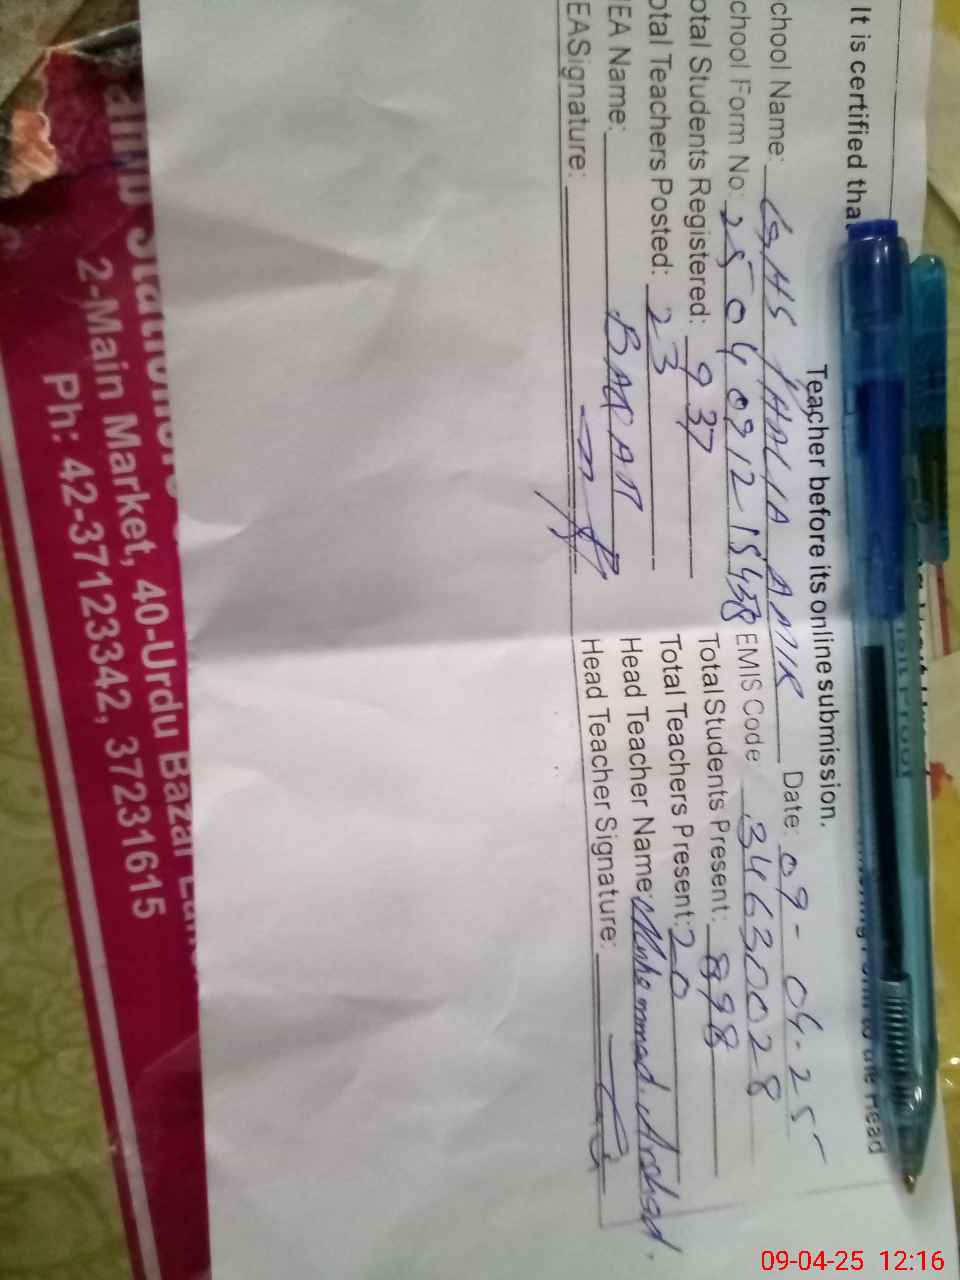 It is certified tha
the Head
Teacher before its online submission.
chool Name: GHS THALIA AMIR Date: 09-04-25
chool Form No: 25040912 EMIS Code 34630028
otal Students Registered: 937 Total Students Present: 898
otal Teachers Posted: 23 Total Teachers Present: 20
EA Name: Head Teacher Name: Muhammad Arshad.
EASignature: Head Teacher Signature:
2-Main Market, 40-Urdu Bazar
Ph: 42-37123342, 37231615
09-04-25 12:16